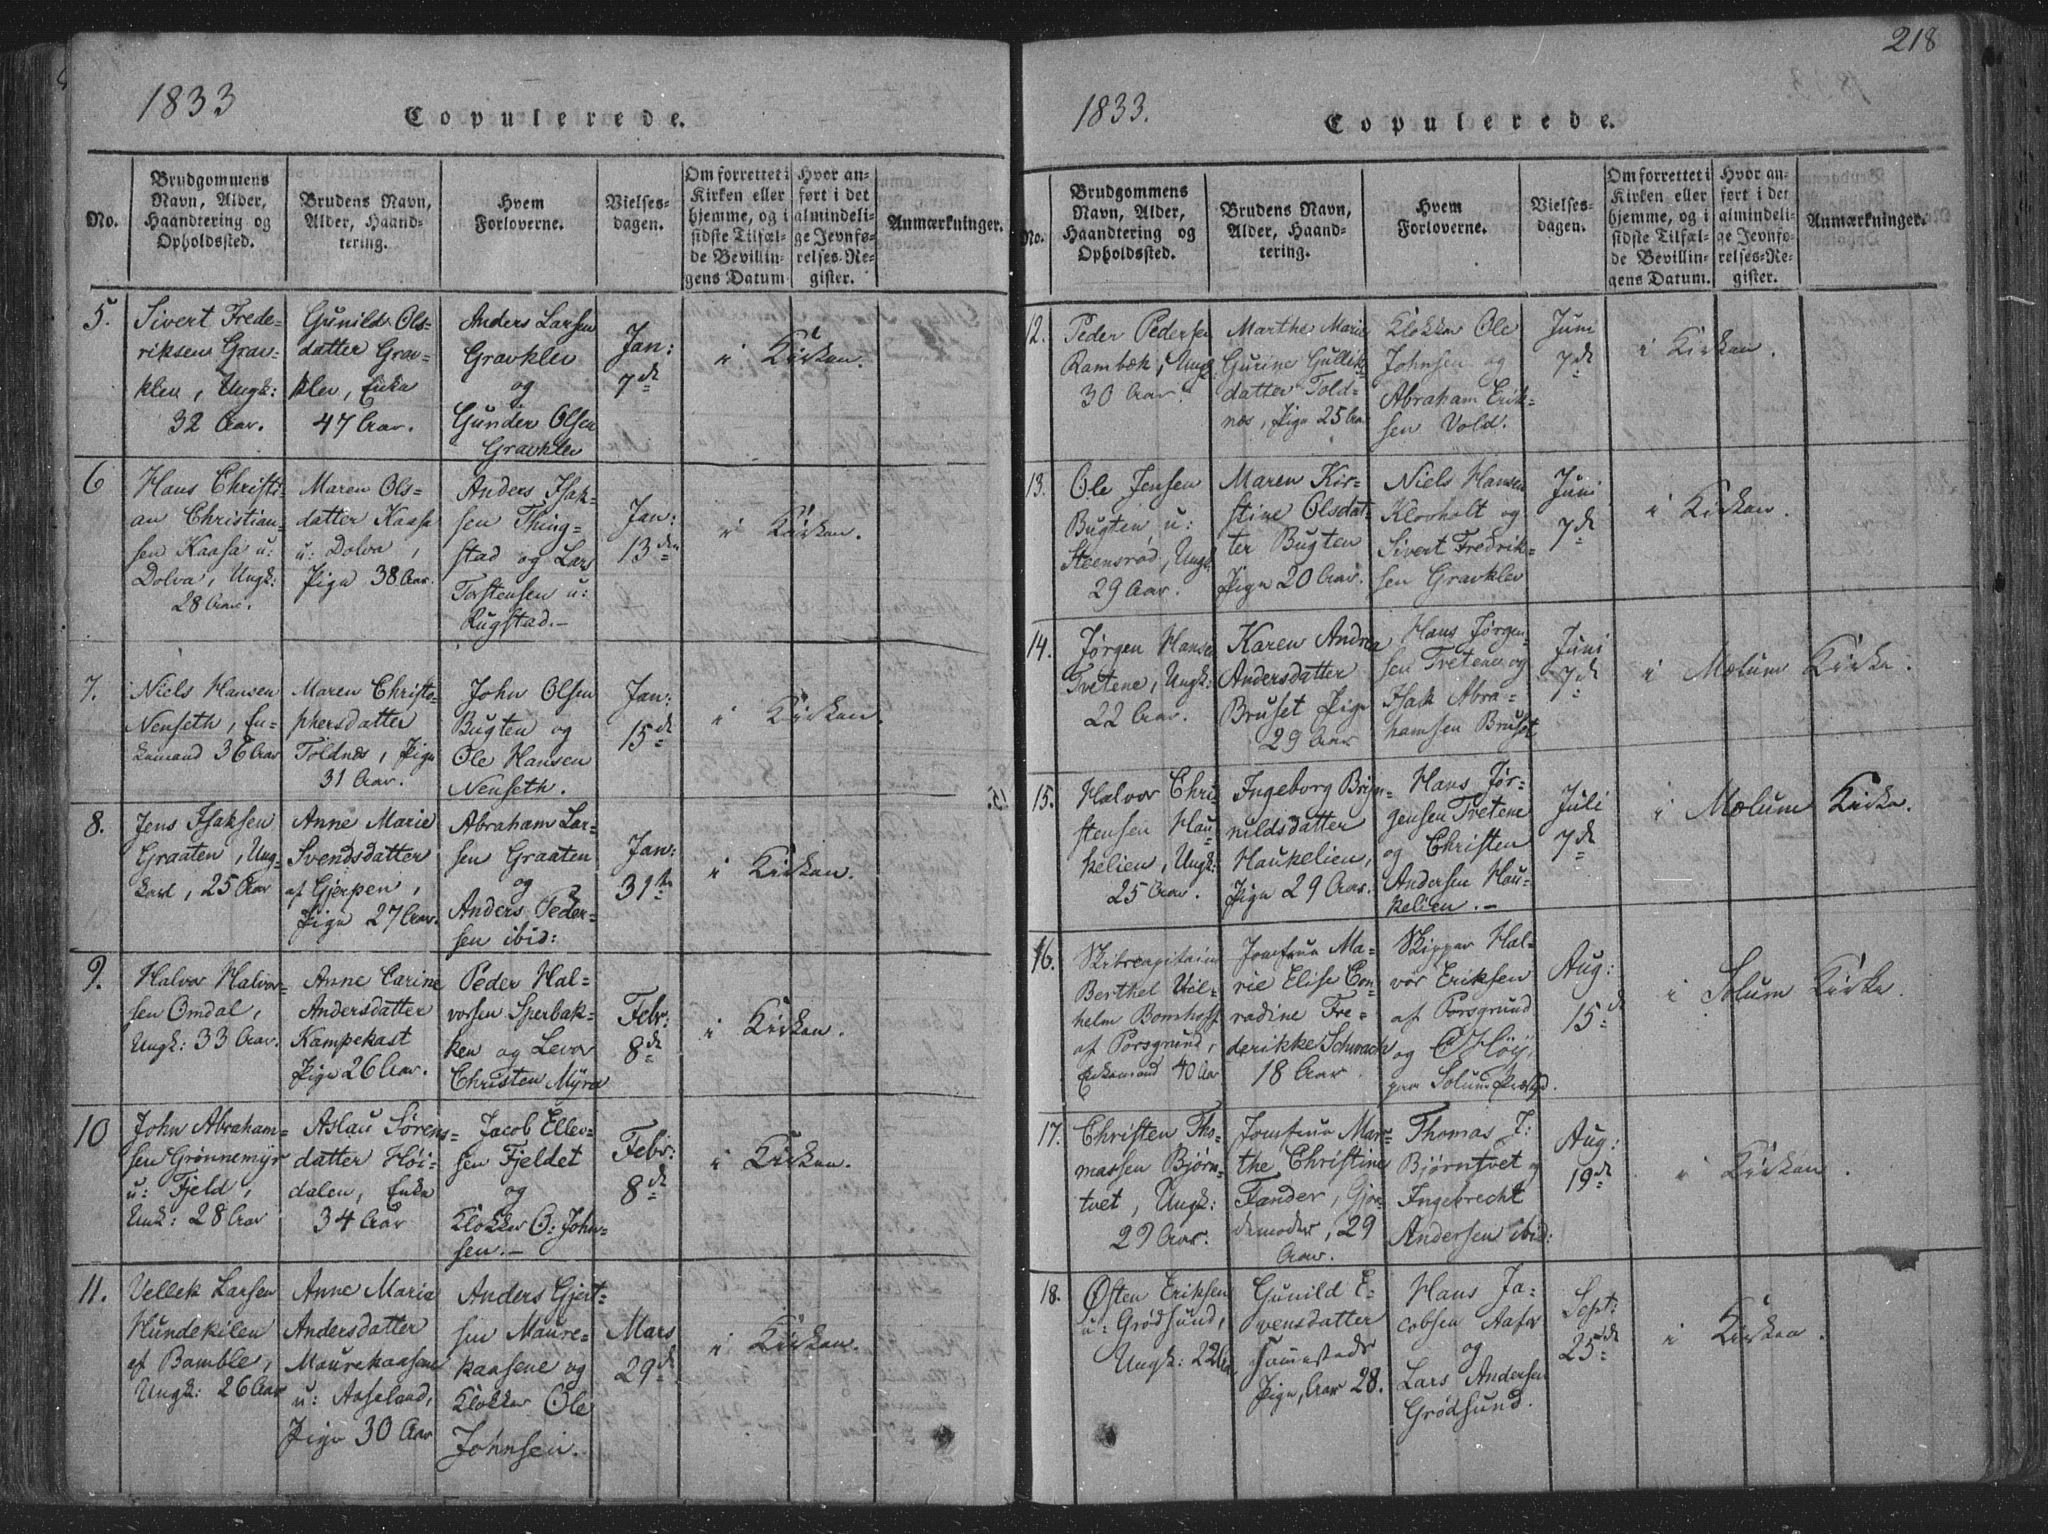 218
1833
Copulerede.
No.
Brudgommens
Navn, Alder,
Haandtering og
Opholdssted.
Brudens Navn,
Alder, Haand-
tering.
Hvem
Forloverne.
Vielses-
dagen.
Om forrettet i
Kirken eller
hjemme, og i
sidste Tilfæl-
de Bevillin-
gens Datum.
Hvor an-
ført i det
almindeli-
ge Jevnfø-
relses-Re-
gister.
Anmærkninger.
5.
Sivert Frede-
riksen Grav-
klev, Ungk:
32 Aar.
Gunild Ols-
datter Grav-
klev, Enke
47 Aar.
Anders Larsen
Gravklev
og
Gunder Olsen
Gravklev
Jan:
7de
i Kirken.
6
Hans Christi-
an Christian-
sen Kaasa u:
Dolva, Ungk:
28 Aar.
Maren Ols-
datter Kaasa
u: Dolva,
Pige 38 Aar.
Anders Isak-
sen Thing-
stad og Lars
Torstensen u:
Rugstad.-
Jan:
13den
i Kirken.
7.
Niels Hansen
Nenseth, En-
kemand 36 Aar
Maren Christo-
phersdatter
Toldnes, Pige
31 Aar.
John Olsen
Bugten og
Ole Hansen
Nenseth.
Jan:
15de
i Kirken.
8.
Jens Isaksen
Graaten, Ung-
karl, 25 Aar
Anne Marie
Svendsdatter
af Gjerpen,
Pige 27 Aar.
Abraham Lar-
sen Graaten
og
Anders Peder-
sen ibid:
Jan:
31te
i Kirken.
9.
Halvor Halvor-
sen Omdal,
Ungk: 33 Aar.
Anne Carine
Andersdatter
Kampekast
Pige 26 Aar.
Peder Hal-
vorsen Sperbak-
ken og Levor
Christen Myra
Febr:
8de
i Kirken.
10
John Abraham-
sen Grönnemyr
u: Fjeld,
Unk: 28 Aar
Aslau Sörens-
datter Höi-
dalen, Enke
34 Aar
Jacob Ellev-
sen Fjeldet
og
Klokker O: John-
sen.-
Febr:
8de
i Kirken.
11.
Vellek Larsen
Hundekilen
af Bamble,
Ungk: 26 Aar
Anne Maria
Andersdatter
Maurekaasene
u: Aaseland,
Pige 30 Aar
Anders Gjert-
sen Maure-
kaasene og
Klokker Ole
Johnsen.
Mars
29de
i Kirken.
1833.
Copulerede.
No.
Brudgommens
Navn, Alder,
Haandtering og
Opholdssted.
Brudens Navn,
Alder, Haand-
tering.
Hvem
Forloverne.
Vielses-
dagen.
Om forrettet i
Kirken eller
hjemme, og i
sidste Tilfæl-
de Bevillin-
gens Datum.
Hvor an-
ført i det
almindeli-
ge Jevnfø-
relses-Re-
gister.
Anmærkninger.
12.
Peder Pedersen
Rambæk, Ungk:
30 Aar.
Marthe Marie
Gurine Gulleks-
datter Told-
nes, Pige 25 Aar
Klokker Ole
Johnsen og
Abraham Erik-
sen Vold.
Juni
7de
i Kirken.
13.
Ole Jensen
Bugten u:
Steensrød, Ungk
29 Aar.
Maren Kir-
stine Olsdat-
ter Bugten
Pige 20 Aar.
Niels Hansen
Klovholt og
Sivert Fredrik-
sen Gravklev
Juni
7de
i Kirken.
14.
Jørgen Hansen
Tvetene, Ungk:
22 Aar.
Karen Andrea
Andersdatter
Bruset Pige
29 Aar
Hans Jörgen-
sen Tvetene og
Isak Abra-
hamsen Bruset
Juni
7de
i Mælum Kirke.
15.
Halvor Chri-
stensen Hau-
kelien, Ungk:
25 Aar.
Ingeborg Bryn-
nildsdatter
Haukelien,
Pige 29 Aar.
Hans Jør-
gensen Tvetene
og Christen
Andersen Hau-
kelien.-
Juli
7de
i Mælum Kirke.
16.
Skibscapitain
Berthel Vil-
helm Bomhoff
af Porsgrund,
Enkemand 40 Aar
Jomfrue Ma-
rie Elise Con-
radine Fre-
derikke Schwach
18 Aar.
Skipper Hal-
vor Eriksen
af Porsgrund
og Høy
paa Solum Præstgd.
Aug:
15de
i Solum Kirke.
17.
Christen Tho-
massen Bjørn-
tvet, Ungk:
29 Aar.
Jomfrue Mar-
the Christine
Tander, Gjor-
demoder, 29
Aar.
Thomas J:
Bjørntvet og
Ingebrecht
Andersen ibid:
Aug:
19de
i Kirken.
18.
Østen Eriksen
u: Grødsund,
Ungk: 22 Aar
Gunild E-
vensdatter
sammesteds
Pige, Aar 28.
Hans Ja-
cobsen Aafos
og
Lars Andersen
Grødsund.
Sept:
25de
i Kirken.